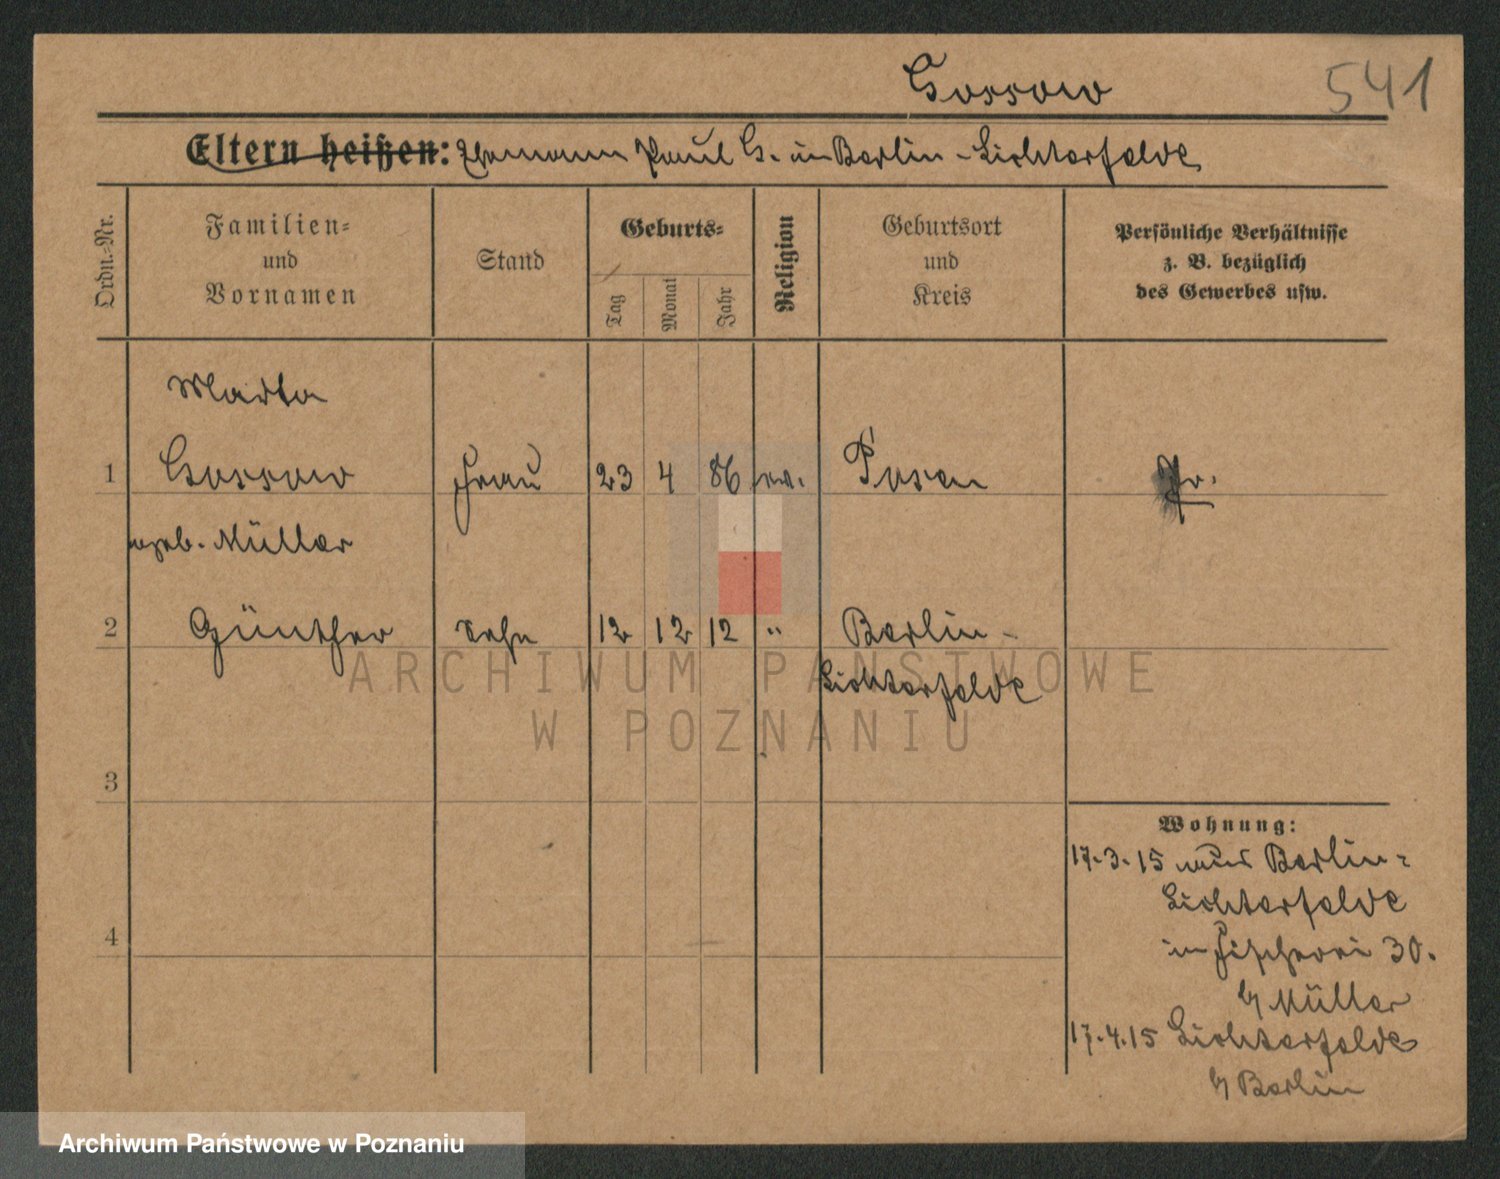 Gossow
541
Eltern heißen: Ehemann Paul G. in Berlin-Lichterfelde
Ordn.-Nr.
Familien-
und
Vornamen
Stand
Geburts-
Tag
Monat
Jahr
Religion
Geburtsort
und
Kreis
Persönliche Verhältnisse
z. B. bezüglich
des Gewerbes usw.
Marta
1 Gossow Frau 23 4 86 ev. Posen Pr.
geb. Müller
2 Günther Sohn 12 12 12 " Berlin-
Lichterfelde
3
4
Wohnung:
17.3.15 aus Berlin-
Lichterfelde
in Fischerei 30.
b/ Müller
17.4.15 Lichterfelde
b/ Berlin
ARCHIWUM PAŃSTWOWE
W POZNANIU
Archiwum Państwowe w Poznaniu